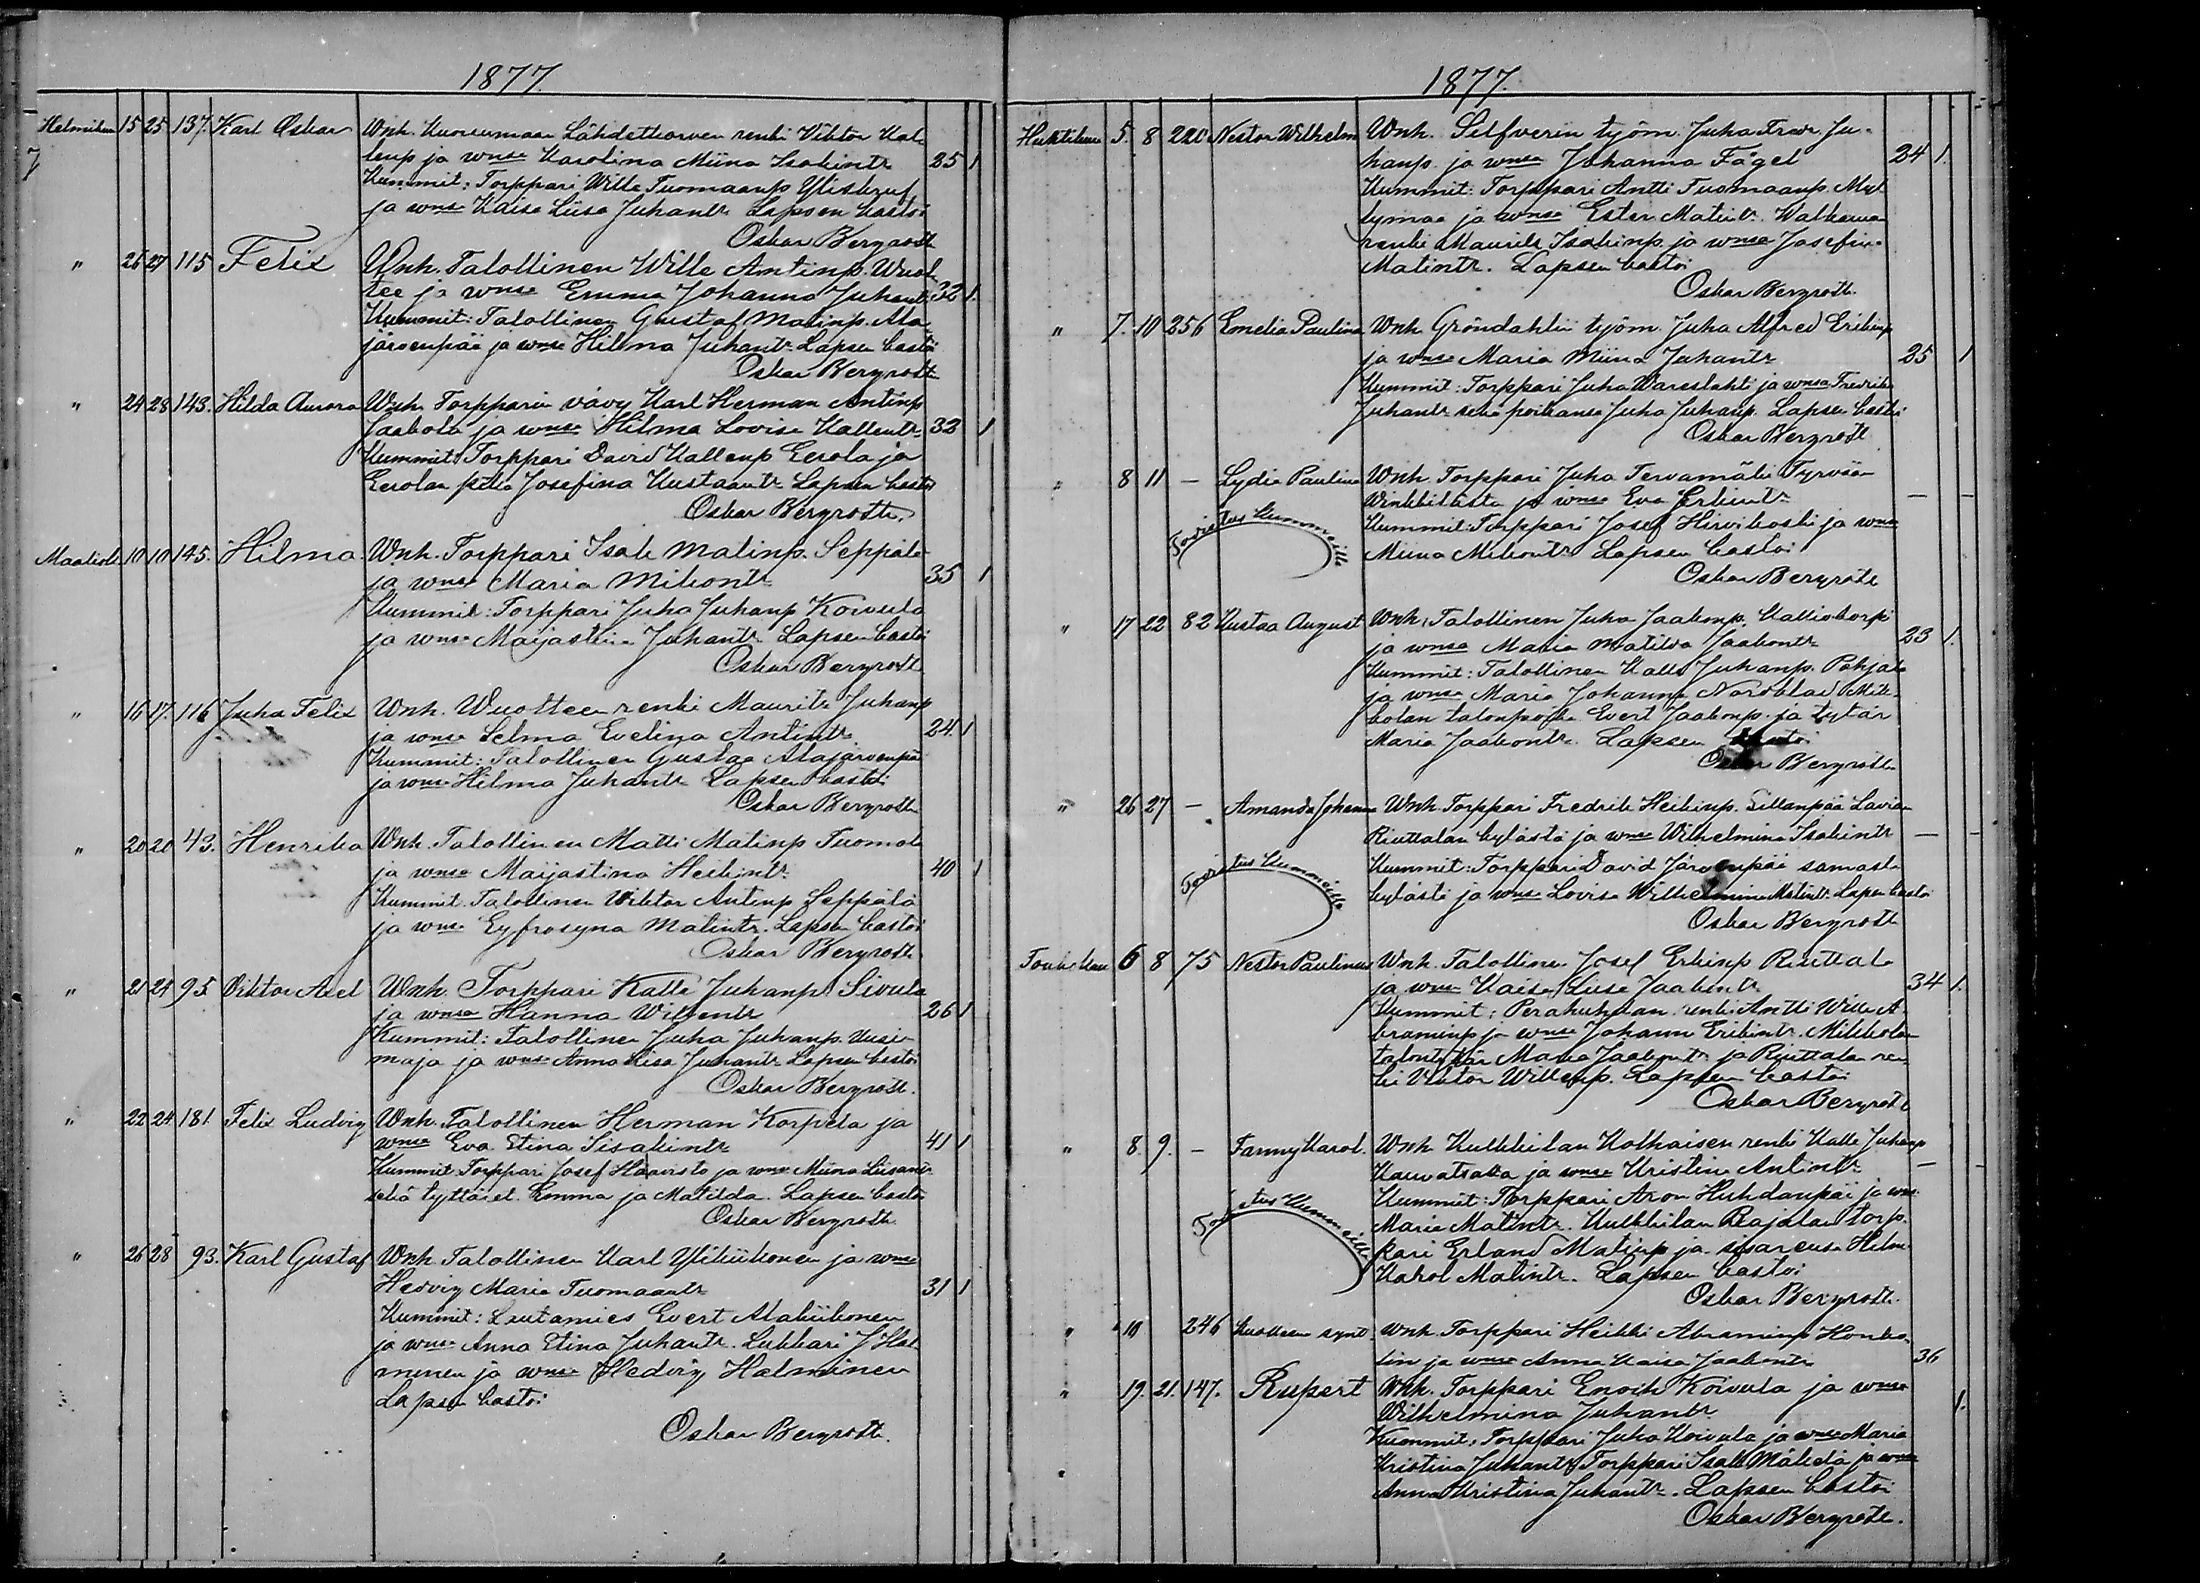 1877.
Helmikuu 15 25 137. Karl Oskar Wnh. Kuorumaan Lähdekorven renki Viktor Kal-
lenp ja wmsa Karolina Miina Isakintr 25 1
Kummit: Torppari Wille Tuomaanp
ja wmsa Kaisa Liisa Juhantr Lapsen kastoi
Oskar Bergroth
" 26 27 115 Felix Wnh. Talollinen Wille Antinp. Wuol-
tee ja wmsa Emma Johanna Juhantr 32 1.
Kummit: Talollinen Gustaf Matinp. Ala
järvenpää ja wmsa Hilma Juhantr Lapsen kastoi
Oskar Bergroth
" 24 28 143. Hilda Aurora Wnh. Torpparin vävy Karl Herman Antinp
Jaakola ja wmsa Hilma Lovisa Kallentr. 32 1
Kummit Torppari David Kallenp Eerola ja
Eerolan piika Josefina Kustaantr Lapsen kastoi
Oskar Bergroth.
Maalisk. 10 10 145. Hilma Wnh. Torppari Isak Matinp. Seppälä
ja wmsa Maria Mikontr 35 1
Kummit: Torppari Juha Juhanp Koivula
ja wmsa Maijastiina Juhantr Lapsen kastoi
Oskar Bergroth
" 16 17. 116 Juha Felix Wnh. Wuolteen renki Maurits Juhanp
ja wmsa Selma Evelina Antintr 24. 1
Kummit: Talollinen Gustaa Alajärvenpää
ja wmsa Hilma Juhantr Lapsen kastoi
Oskar Bergroth
" 20 20 43. Henrika Wnh. Talollinen Matti Matinp Tuomola
ja wmsa Maijastina Heikintr. 40 1
Kummit. Talollinen Viktor Antinp Seppälä
ja wmsa Eyfrosyna Matintr. Lapsen kastoi
Oskar Bergroth
" 21 24 95 Viktor Axel Wnh. Torppari Kalle Juhanp. Sivula
ja wmsa Hanna Willentr 26 1
Kummit: Talollinen Juha Juhanp. Uusi-
maja ja wmsa Anna Liisa Juhantr Lapsen kastoi
Oskar Bergroth.
" 22 24 181. Felix Ludvig Wnh. Talollinen Herman Korpela ja
wmsa Eva Stina Iisakintr 41 1
Kummit Torppari Josef Haavisto ja wmsa Miina Liisantr
sekä tyttäret Emma ja Matilda. Lapsen kastoi
Oskar Bergroth.
" 26 28 93. Karl Gustaf Wnh. Talollinen Karl Ylikiikonen ja wmsa
Hedvig Maria Tuomaantr 31 1
Kummit: Lautamies Evert Alakiikonen
ja wmsa Anna Stina Juhantr. Lukkari J Hal
minen ja wmsa Hedvig Halminen
Lapsen kastoi
Oskar Bergroth.
1877.
Huhtikuu 5. 8 220 Nestor Wilhelm Wnh. Selfverin työm. Juha Fredr. Ju-
hanp. ja wmsa Johanna Fågel 24 1.
Kummit: Torppari Antti Tuomaanp. Myl
lymaa ja wmsa Ester Matintr.
renki Maurits Isakinp. ja wmsa Josefina
Matintr. Lapsen kastoi
Oskar Bergroth.
" 7. 10 256 Emelia Paulina Wnh Gröndahlin työm. Juha Alfred Erikinp
ja wmsa Maria Miina Juhantr 25 1
Kummit: Torppari Juha Wareslahti ja wmsa Fredrika
Juhantr sekä poikansa Juha Juhanp. Lapsen kastoi
Oskar Bergroth
" 8 11 — Lydia Paulina Wnh Torppari Juha Tervamäki Tyrvään
ja wmsa Eva Erkintr. — —
Todistus Kummeille
Kummit: Torppari Josef Hirvikoski ja wmsa
Miina Mikontr Lapsen kastoi
Oskar Bergroth
" 17 22 82 Kustaa August Wnh. Talollinen Juha Jaakonp. Kalliokorpi
ja wmsa Maria Matilda Jaakontr 23 1.
Kummit: Talollinen Kalle Juhanp. Pohjala
ja wmsa Maria Johanna Nordblad Mik-
kolan talonpoika Evert Jaakonp. ja tytär
Maria Jaakontr. Lapsen kastoi
Oskar Bergroth
" 26 27 — Amanda Johanna Wnh. Torppari Fredrik Heikinp. Sillanpää Lavian
Riuttalan kylästä ja wmsa Wilhelmina Isakintr — —
Todistus Kummeille
Kummit: Torppari David Järvenpää samasta
kylästä ja wmsa Lovisa Wilhelmina Matintr. Lapsen kastoi
Oskar Bergroth
Toukokuu 6 8 75 Nestor Paulinus Wnh. Talollinen Josef Erkinp Riuttala
ja wmsa Kaisa Liisa Jaakontr 34 1.
Kummit: Perähuhdan renki Antti Wille A-
braminp ja wmsa Johanna Erikintr. Mikkola
talontytär Maria Jaakontr ja Riuttala ren
ki Viktor Willenp. Lapsen kastoi
Oskar Bergroth
" 8. 9. — Fanny Karol. Wnh Kulkkilan Kolkaisen renki Kalle Juhanp
Kauvatsalta ja wmsa Kristina Antintr — —
Todistus Kummeille
Kummit: Torppari Aron Huhdanpää ja wmsa
Maria Matintr. Kulkkilan Rajalan torp-
pari Erland Matinp ja sisarensa Helm
Karol Matintr. Lapsen kastoi
Oskar Bergroth.
" 10 246 Kuolleena synt. Wnh. Torppari Heikki Abraminp Honko-
ja wmsa Anna Kaisa Jaakontr 36
" 19. 21. 147. Rupert Wnh. Torppari Enoch Koivula ja wmsa
Wilhelmina Juhantr 1.
Kummit: Torppari Juha Koivula ja wmsa Maria
Kristina Juhantr, Torppari Isak Mäkelä ja wmsa
Anna Kristina Juhantr. Lapsen kastoi
Oskar Bergroth.